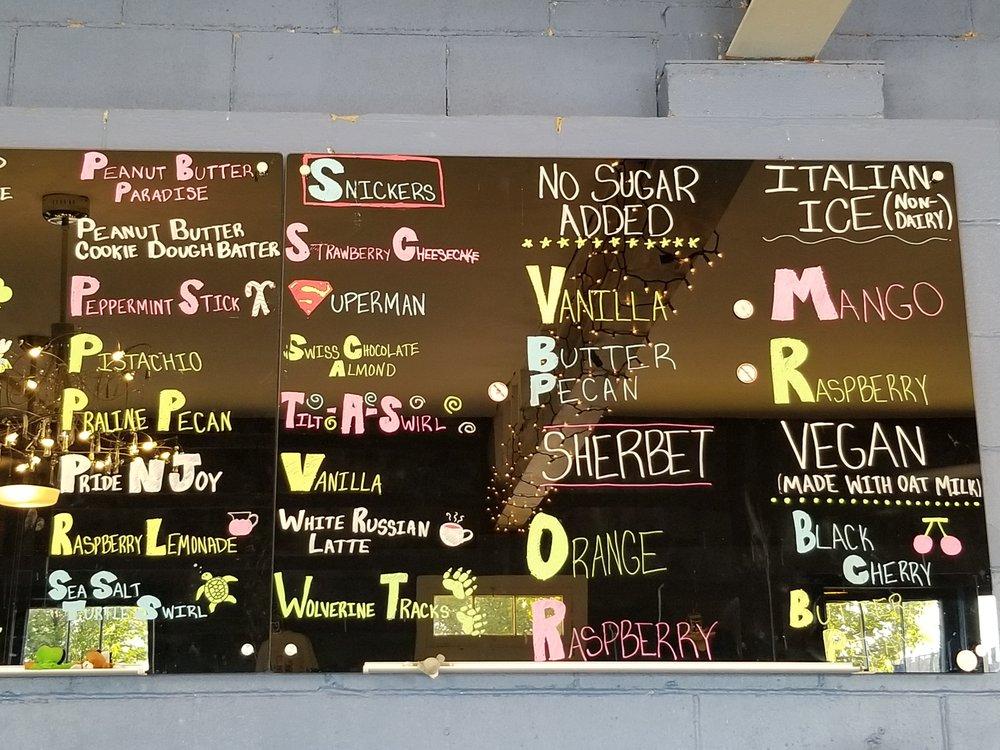 PEANUT BUTTER
PARADISE
PEANUT BUTTER
COOKIE DOUGH BATTER
PEPPERMINT STICK
PISTACHIO
PRALINE PECAN
PRIDE N JOY
RASPBERRY LEMONADE
SEA SALT
TURTLE SWIRL
SNICKERS
STRAWBERRY CHEESECAKE
SUPERMAN
SWISS CHOCOLATE
ALMOND
TILT-A-SWIRL
VANILLA
WHITE RUSSIAN
LATTE
WOLVERINE TRACKS
NO SUGAR
ADDED
VANILLA
BUTTER
PECAN
SHERBET
ORANGE
RASPBERRY
ITALIAN
ICE (NON-
DAIRY)
MANGO
RASPBERRY
VEGAN
(MADE WITH OAT MILK)
BLACK
CHERRY
BUTTER